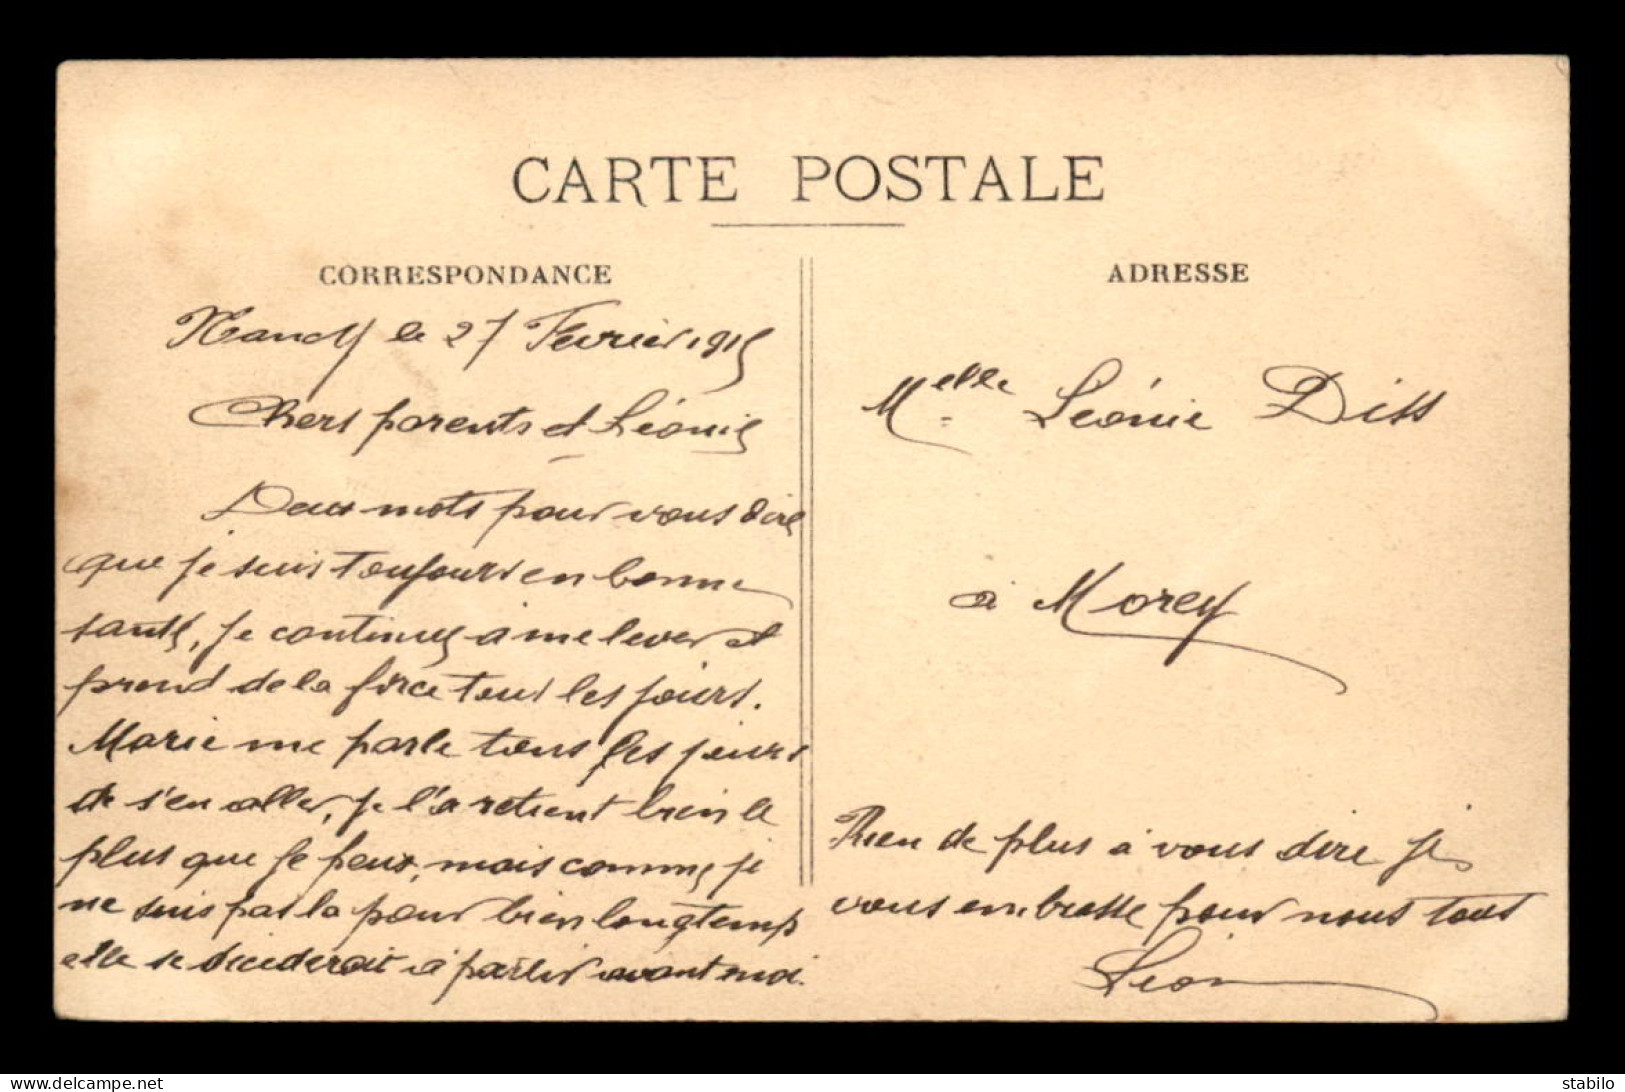 CARTE POSTALE
CORRESPONDANCE
Nancy le 27 Février 1915
Chers parents et Léonie
Deux mots pour vous dire
que je suis toujours en bonne
santé, je continue a me lever et
prend de la force tous les jours.
Marie me parle tous les jours
de s'en aller, je l'a retient bien le
plus que je peux, mais comme je
ne suis pas la pour bien longtemps
elle se deciderait à partir avant moi.
ADRESSE
Melle Léonie Diss
à Morey
Rien de plus a vous dire je
vous embrasse pour nous tous
Léon
https://www.delcampe.net
stabilo